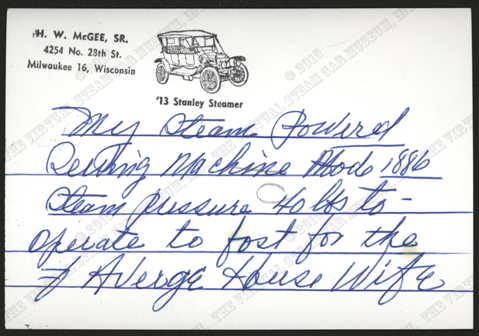 H. W. McGEE, SR.
4254 No. 28th St.
Milwaukee 16, Wisconsin
'13 Stanley Steamer
My Steam Powered
Sewing Machine Mode 1886
Steam pressure 40 lbs to -
operate to fast for the
Averge House Wife